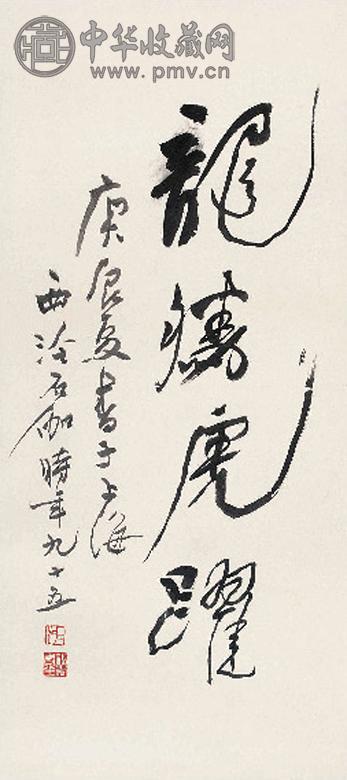 中华收藏网
www.pmv.cn
龍騰虎躍
庚辰夏書于上海
西泠石伽時年九十五